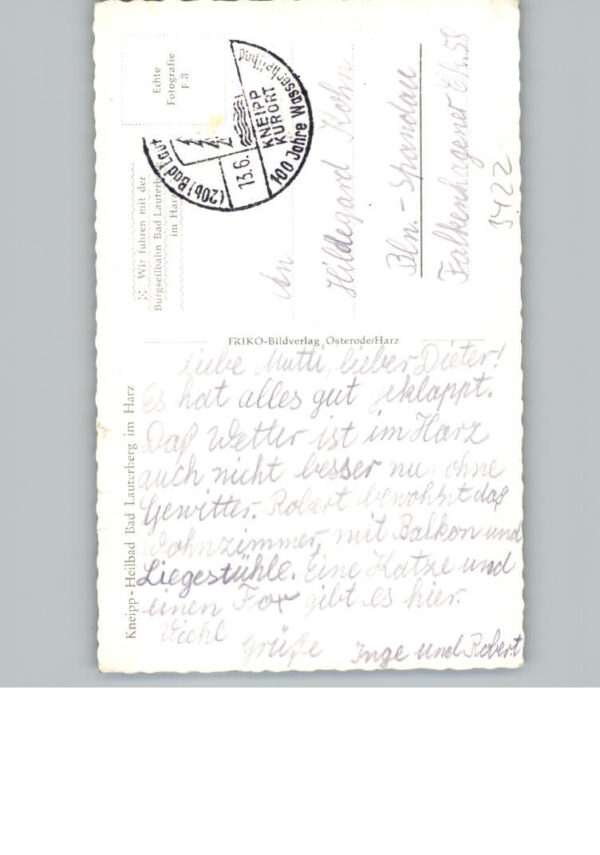 Echte
Fotografie
F 8
(20b) Bad Laut
13.6.
KNEIPP
KURORT
100 Jahre Wasserheilbad
Wir fuhren mit der
Burgseilbahn Bad Lauterberg
im Harz
An
Hildegard
Bln. - Spandau
Falkenhagener Str. 58
3422
FRIKO-Bildverlag Osterode/Harz
Kneipp-Heilbad Bad Lauterberg im Harz
Liebe Mutti, lieber Dieter!
Es hat alles gut geklappt.
Daß Wetter ist im Harz
auch nicht besser nur ohne
Gewitter. Robert bewohnt daß
Wohnzimmer, mit Balkon und
Liegestühle. Eine Katze und
einen Fox gibt es hier.
Viehl
Grüße Inge und Robert